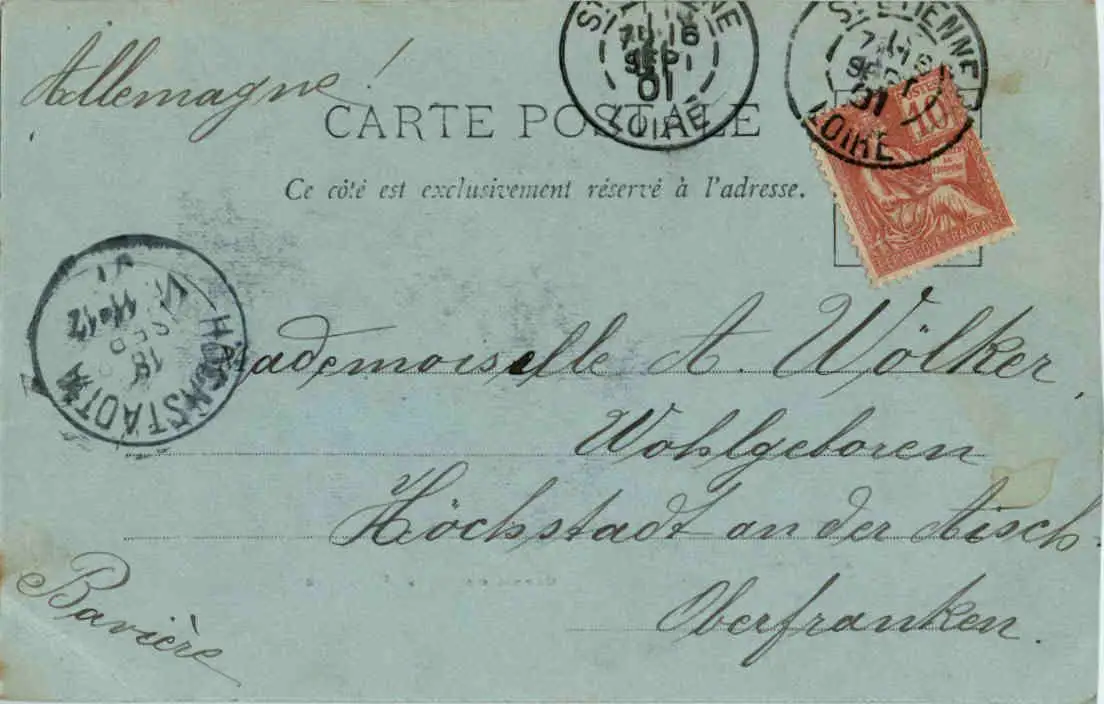 Allemagne!
ST ETIENNE
7 16
SEPT
01
LOIRE
ST ETIENNE
7 16
SEPT
01
LOIRE
POSTES
10
REPUBLIQUE FRANÇAISE
CARTE POSTALE
Ce côté est exclusivement réservé à l'adresse.
HÖCHSTADT A
18
SEP
11-12
01
Mademoiselle A. Wölker,
Wohlgeboren
Höchstadt an der Aisch.
Oberfranken.
Bavière